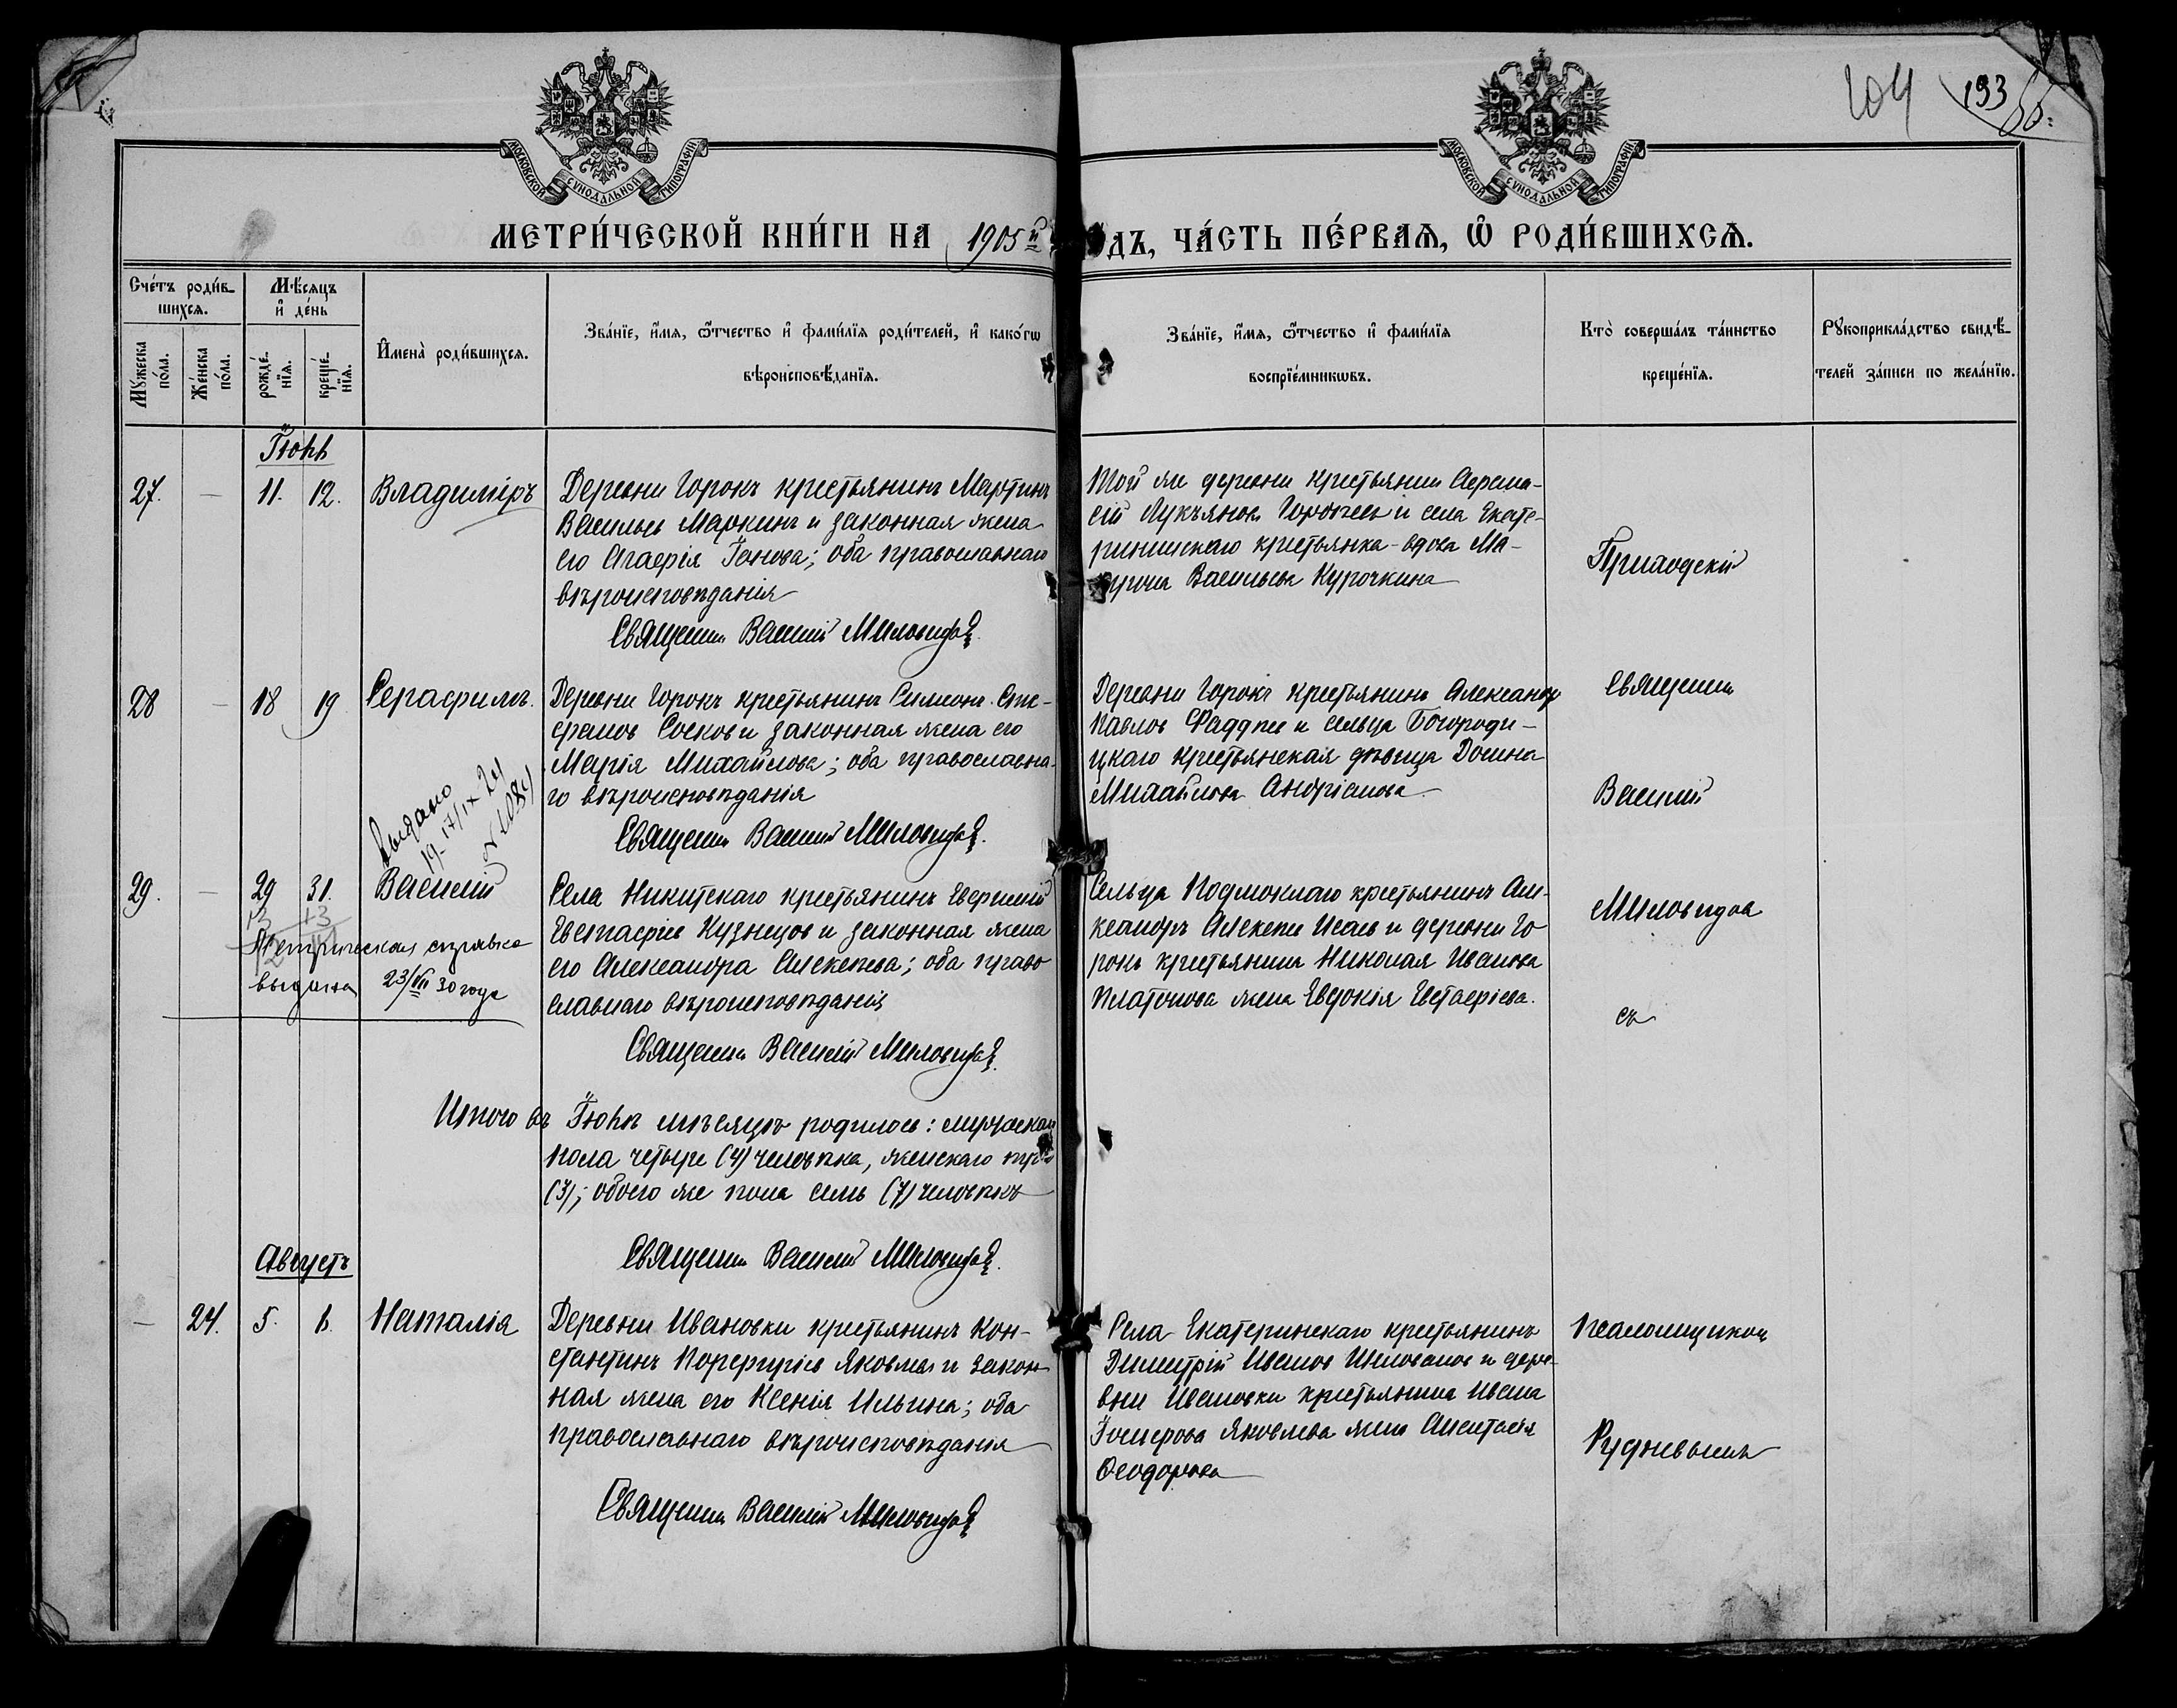 104 193 об.
МОСКОВСКОЙ СѴНОДАЛЬНОЙ ТИПОГРАФІИ
МОСКОВСКОЙ СѴНОДАЛЬНОЙ ТИПОГРАФІИ
МЕТРИ́ЧЕСКОЙ КНИ́ГИ НА 1905й
ДЪ, ЧА́СТЬ ПЕ́РВАѦ, Ѿ РОДИ́ВШИХСѦ.
Сче́тъ роди́в-
шихсѧ.
Мѣ́сяцъ
и҆ де́нь
Мꙋ́жеска
по́ла.
Же́нска
по́ла.
рожде́-
нїѧ.
креще́-
нїѧ.
И҆мена̀ роди́вшихсѧ.
Зва́нїе, и҆́мѧ, ѻ҆́тчество и҆ фами́лїѧ роди́телей, и҆ како́гѡ
вѣроисповѣ́данїѧ.
Зва́нїе, и҆́мѧ, ѻ҆́тчество и҆ фами́лїѧ
воспрїе́мникѡвъ.
Кто̀ соверша́лъ та́инство
креще́нїѧ.
Рꙋкоприкла́дство свидѣ́-
телей за́писи по жела́нїю.
Іюль
27. — 11. 12. Владиміръ
Деревни Горокъ крестьянинъ Мартинъ
Васильев Маркинъ и законная жена
его Агафія Іонова; оба православнаго
вѣроисповѣданія
Священник Василій Миловидов
Той же деревни крестьянин Афана-
сій Лукьянов и села Екате-
рининскаго крестьянка-вдова Ма-
Васильева Курочкина
Приходскій
28 — 18 19 Серафимъ.
Деревни Горокъ крестьянинъ Симеонъ Сте-
фанов Сосков и законная жена его
Марія Михайлова; оба православна-
го вѣроисповѣданія
Священник Василій Миловидов
Деревни Горокъ крестьянинъ Александр
Павлов Фаддѣев и сельца Богороди-
цкаго крестьянская дѣвица Домна
Михайлова Андріанова
Священник
Василій
Выдано
19-17/IX 24
29. — 29 31. Василій
13 +3
Метрическая справка
выдана 23/VII 30 года
Села Никитскаго крестьянинъ
Евстафіев Кузнецов и законная жена
его Александра Алексѣева; оба право
славнаго вѣроисповѣданія
Священник Василій Миловидов
Сельца Подмоклаго крестьянинъ Але-
ксандръ Алексѣев Исаев и деревни Го
рокъ крестьянина Николая Иванова
Платонова жена Евдокія Евстафіева.
Миловидов
съ
Итого въ Іюлѣ мѣсяцѣ родилось: мужескаго
пола четыре (4) человѣка, женскаго три
(3); обоего же пола семь (7) человѣкъ
Священник Василій Миловидов
Августъ
— 24. 5. 6. Наталія
Деревни Ивановки крестьянинъ Кон-
стантинъ Порфиріев Яковлев и закон-
ная жена его Ксенія Ильина; оба
православнаго вѣроисповѣданія
Священник Василій Миловидов
Села Екатерининскаго крестьянинъ
Димитрій Иванов и дере-
вни Ивановки крестьянина Ивана
Яковлева жена Анастасія
Ѳеодорова
Псаломщиком
Рудневымъ